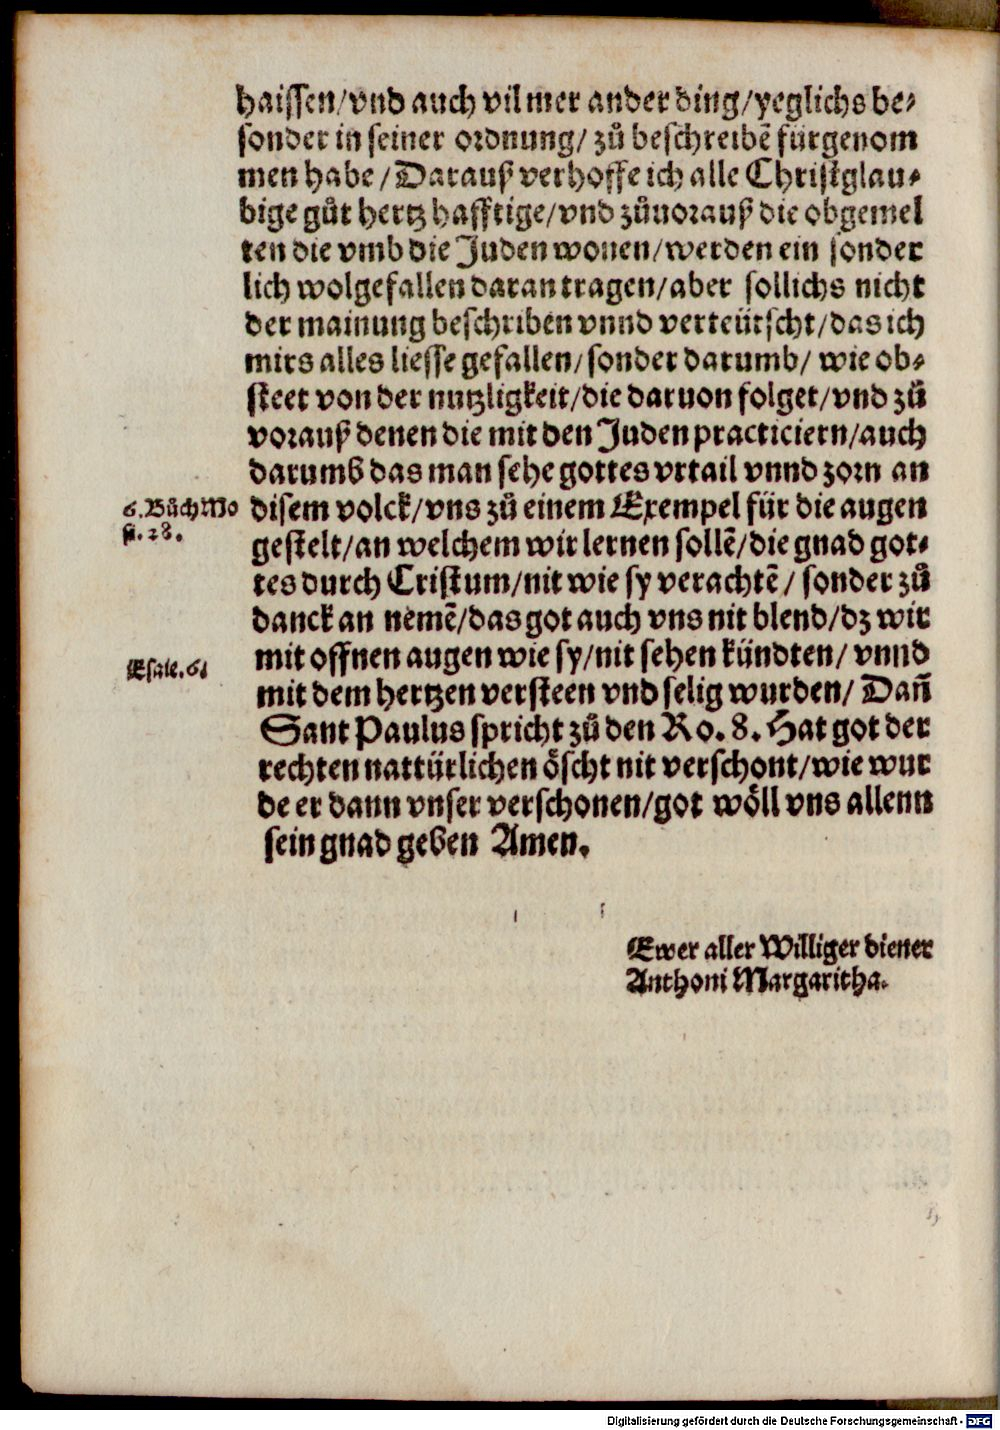 haissen/vnd auch vil mer ander ding/yeglichs be⸗
sonder in seiner ordnung/ zů beschreibē fürgenom
men habe/Darauß verhoffe ich alle Christglau⸗
bige gůt hertz hafftige/vnd zůuorauß die obgemel
ten die vmb die Juden wonen/werden ein sonder
lich wolgefallen daran tragen/aber sollichs nicht
der mainung beschriben vnnd verteütscht/das ich
mirs alles liesse gefallen/sonder darumb/ wie ob⸗
steet von der nutzligkeit/die daruon folget/vnd zů
vorauß denen die mit den Juden practiciern/auch
darumb das man sehe gottes vrtail vnnd zorn an
6. Bůch Mo
si. 28.
disem volck/vns zů einem Exempel für die augen
gestelt/an welchem wir lernen sollē/die gnad got⸗
tes durch Cristum/nit wie sy verachtē/ sonder zů
danck an nemē/das got auch vns nit blend/dz wir
Esaie. 6.
mit offnen augen wie sy/nit sehen kündten/ vnnd
mit dem hertzen versteen vnd selig wurden/ Dañ
Sant Paulus spricht zů den Ro. 8. Hat got der
rechten nattürlichen öscht nit verschont/wie wur
de er dann vnser verschonen/got wöll vns allenn
sein gnad geben Amen.
Ewer aller Williger diener
Anthoni Margaritha.
Digitalisierung gefördert durch die Deutsche Forschungsgemeinschaft - DFG